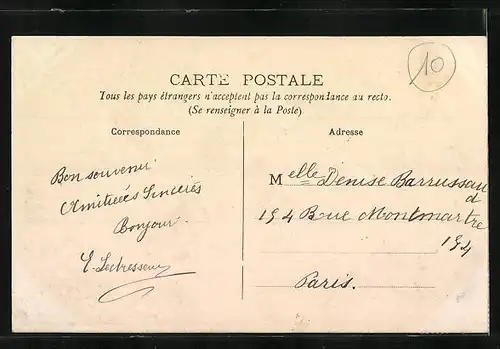 10
CARTE POSTALE
Tous les pays étrangers n'acceptent pas la correspondance au recto.
(Se renseigner à la Poste)
Correspondance
Bon souvenir
Amitieés Sincères
Bonjour
E.
Adresse
Melle Denise Barrussau
d
194 Boue Montmartre
194
Paris.